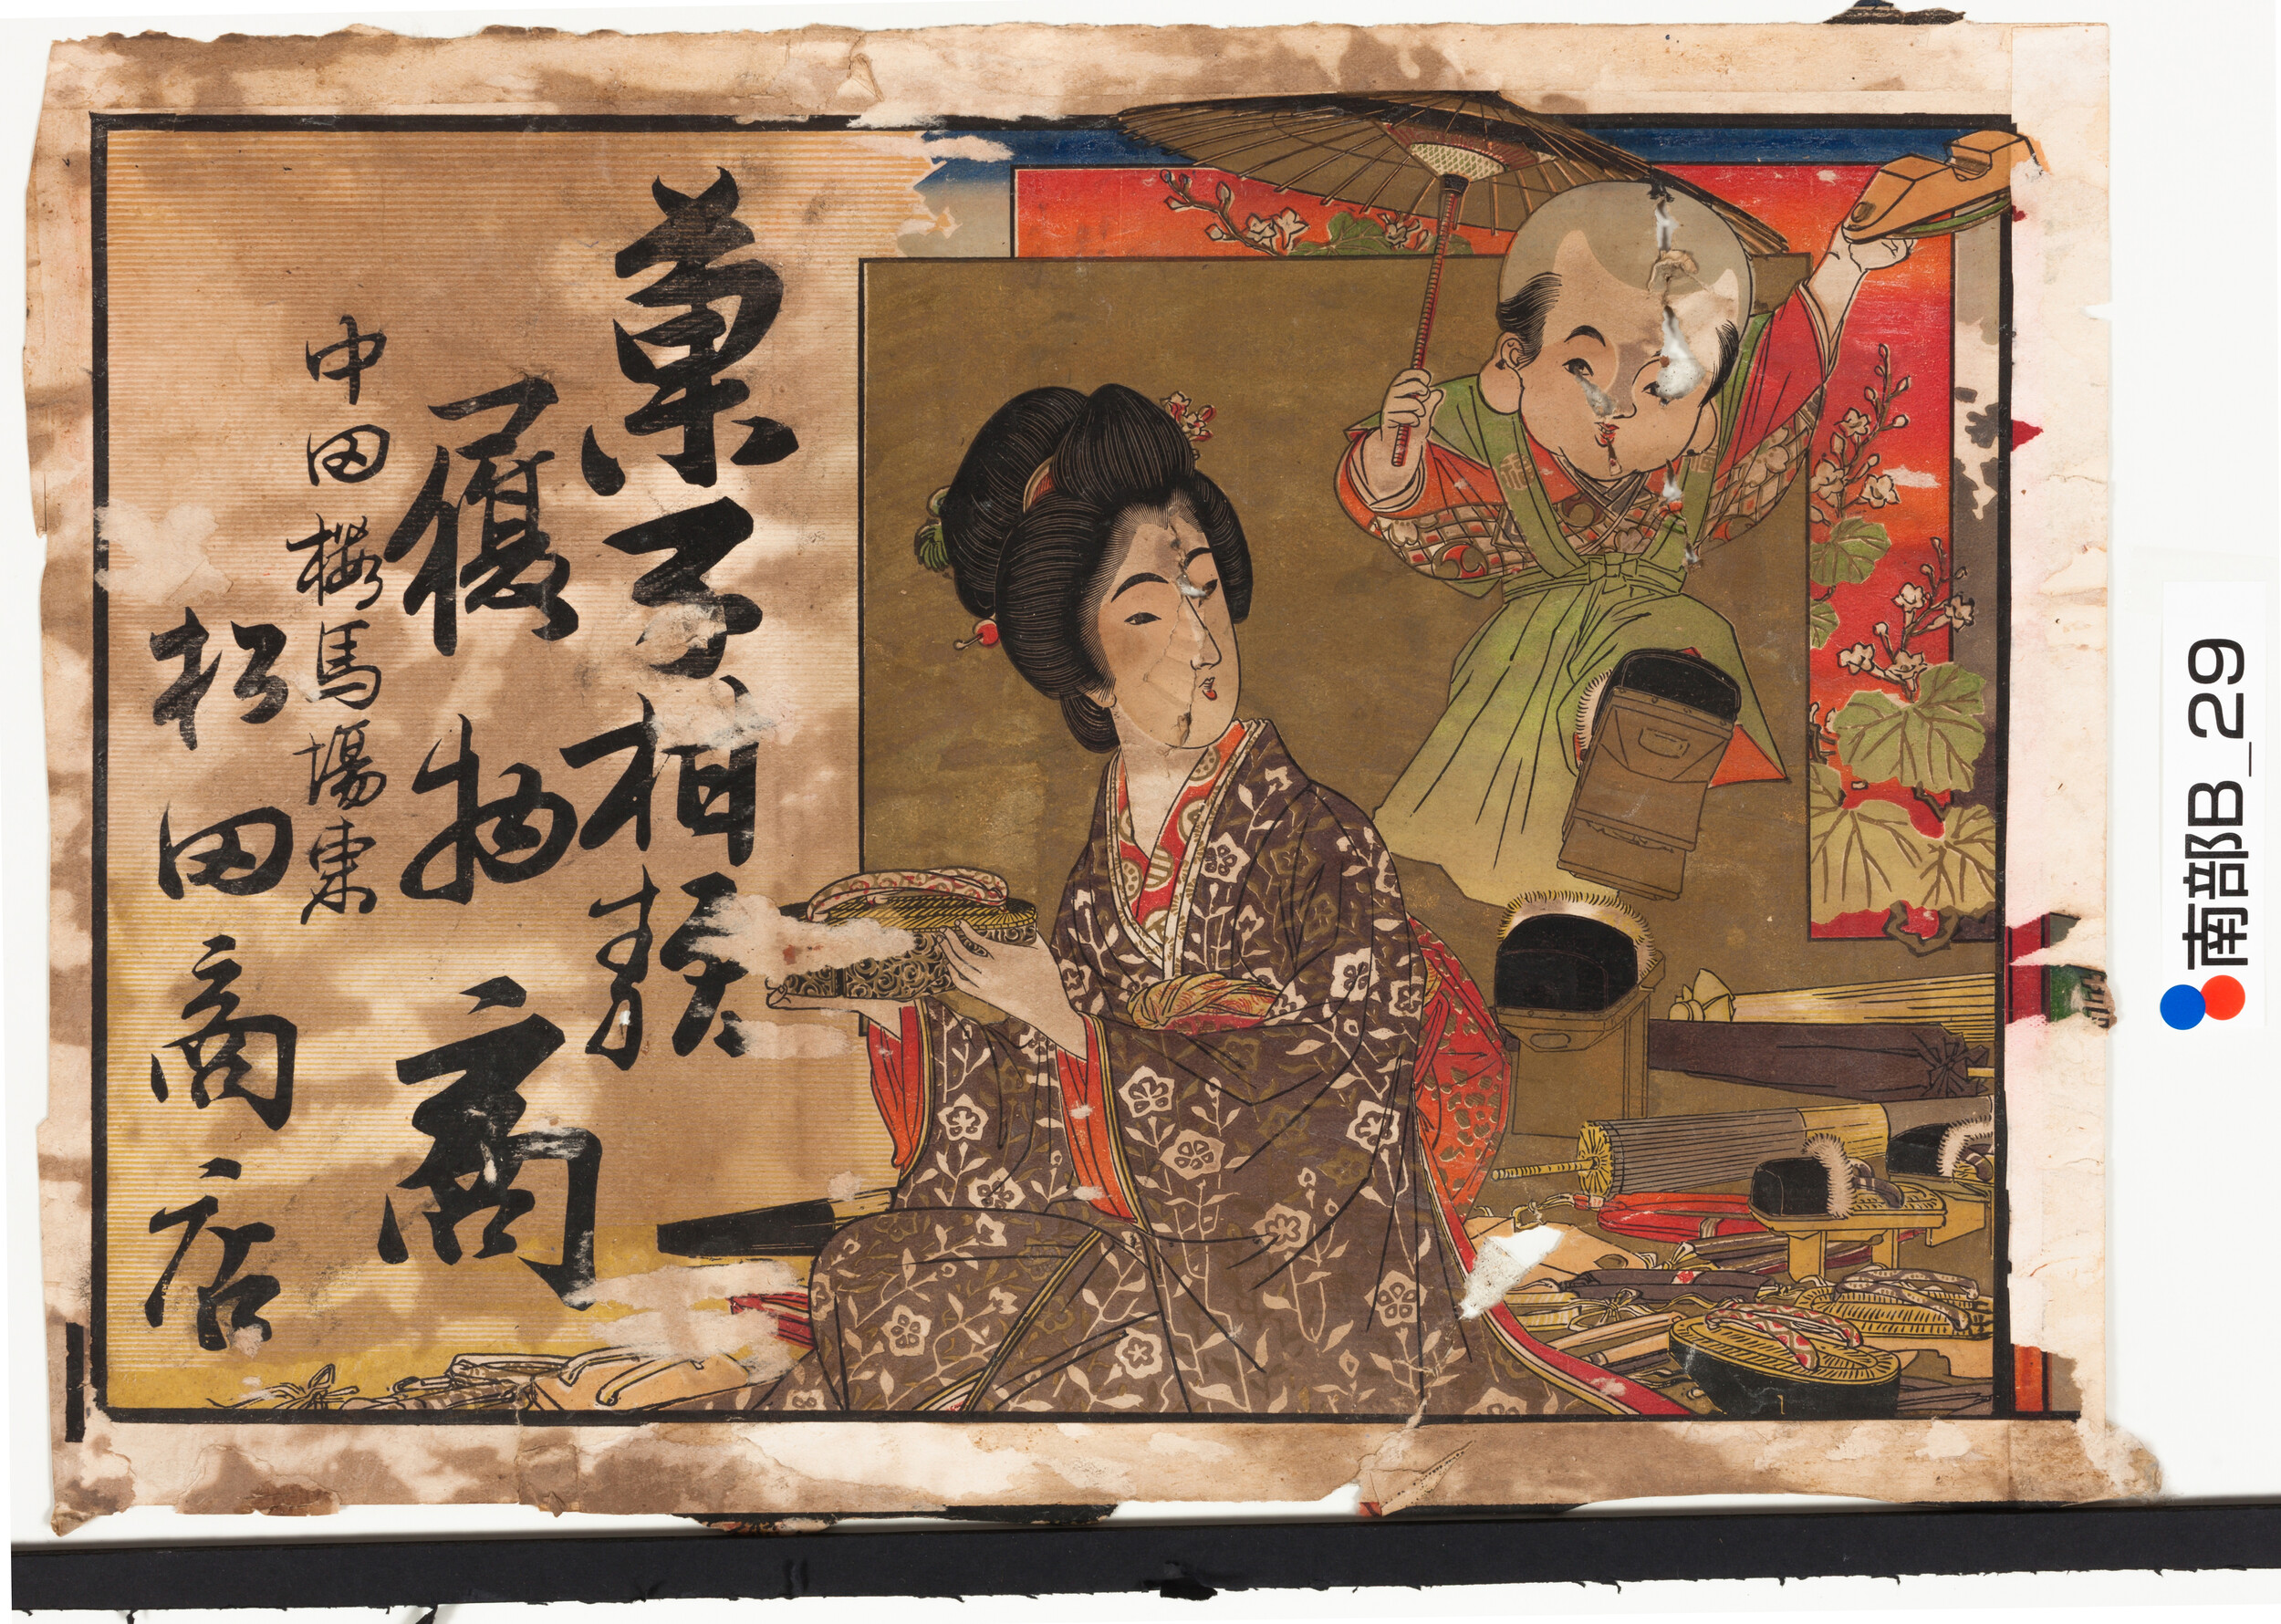 菓子相類
履物商
中田櫻馬場東
松田商店
福
南部B_29